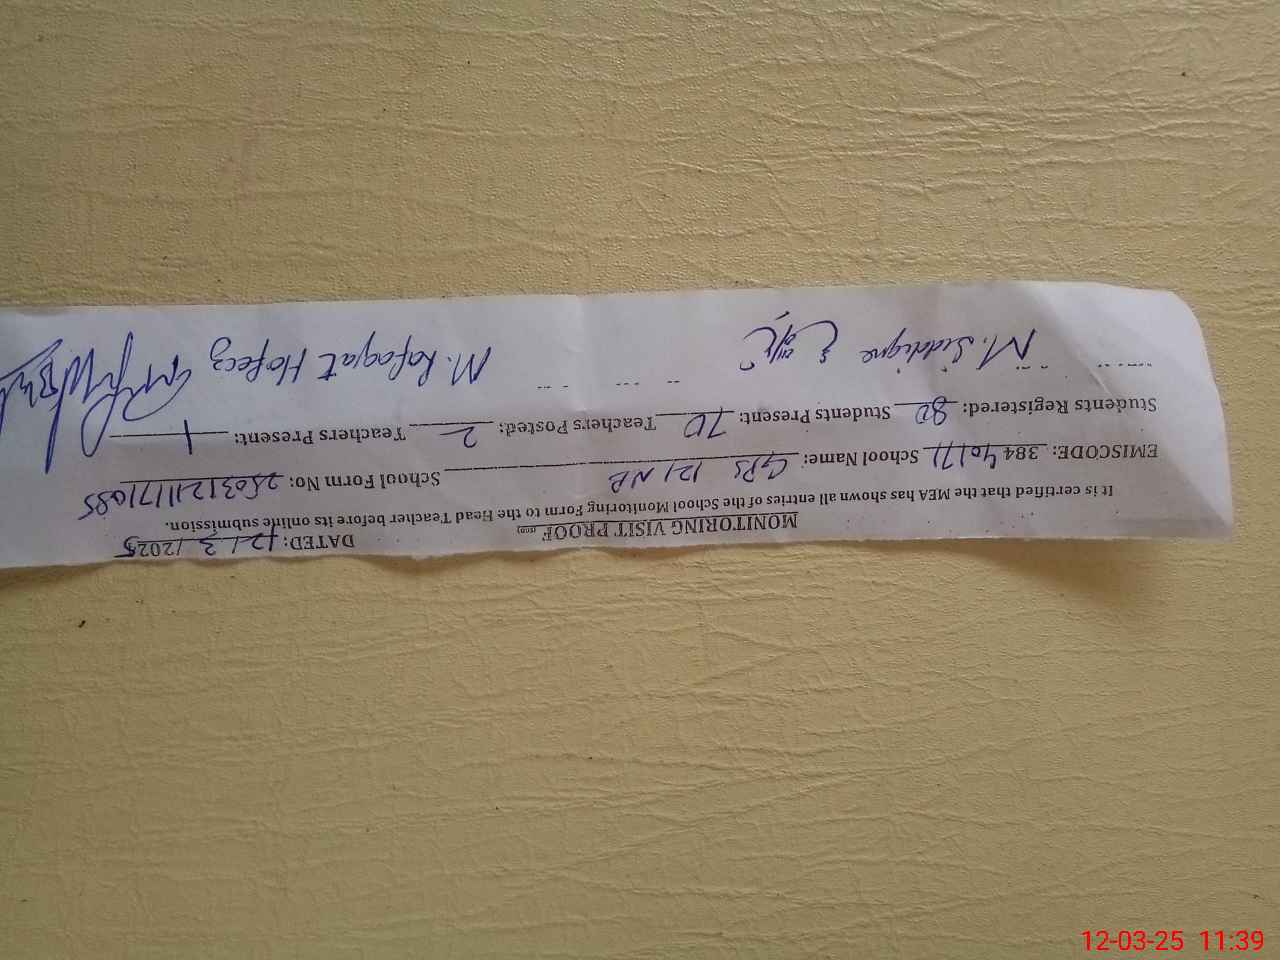 MONITORING VISIT PROOF DATED: 12/3/2025
It is certified that the MEA has shown all entries of the School Monitoring Form to the Head Teacher before its online submission.
EMISCODE: 384 40171 School Name: GPS 121 NB School Form No: 2503121171085
Students Registered: 80 Students Present: 70 Teachers Posted: 2 Teachers Present: 1
M. Siddique M. Rafaqat Hafeez
12-03-25 11:39